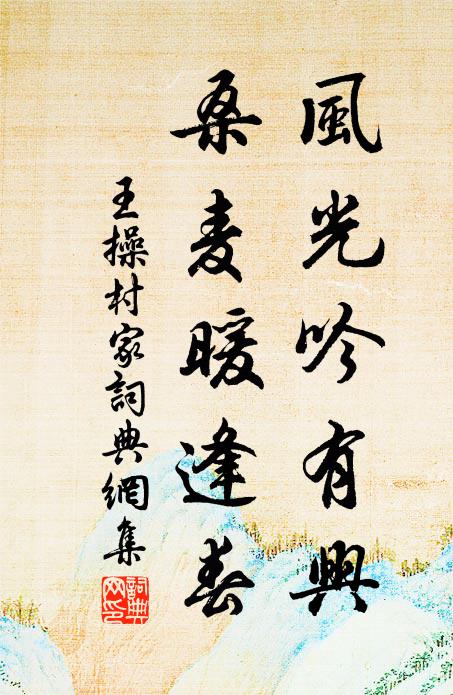 風光吟有興
桑麦暖逢春
王操村家詞典網集
詞典